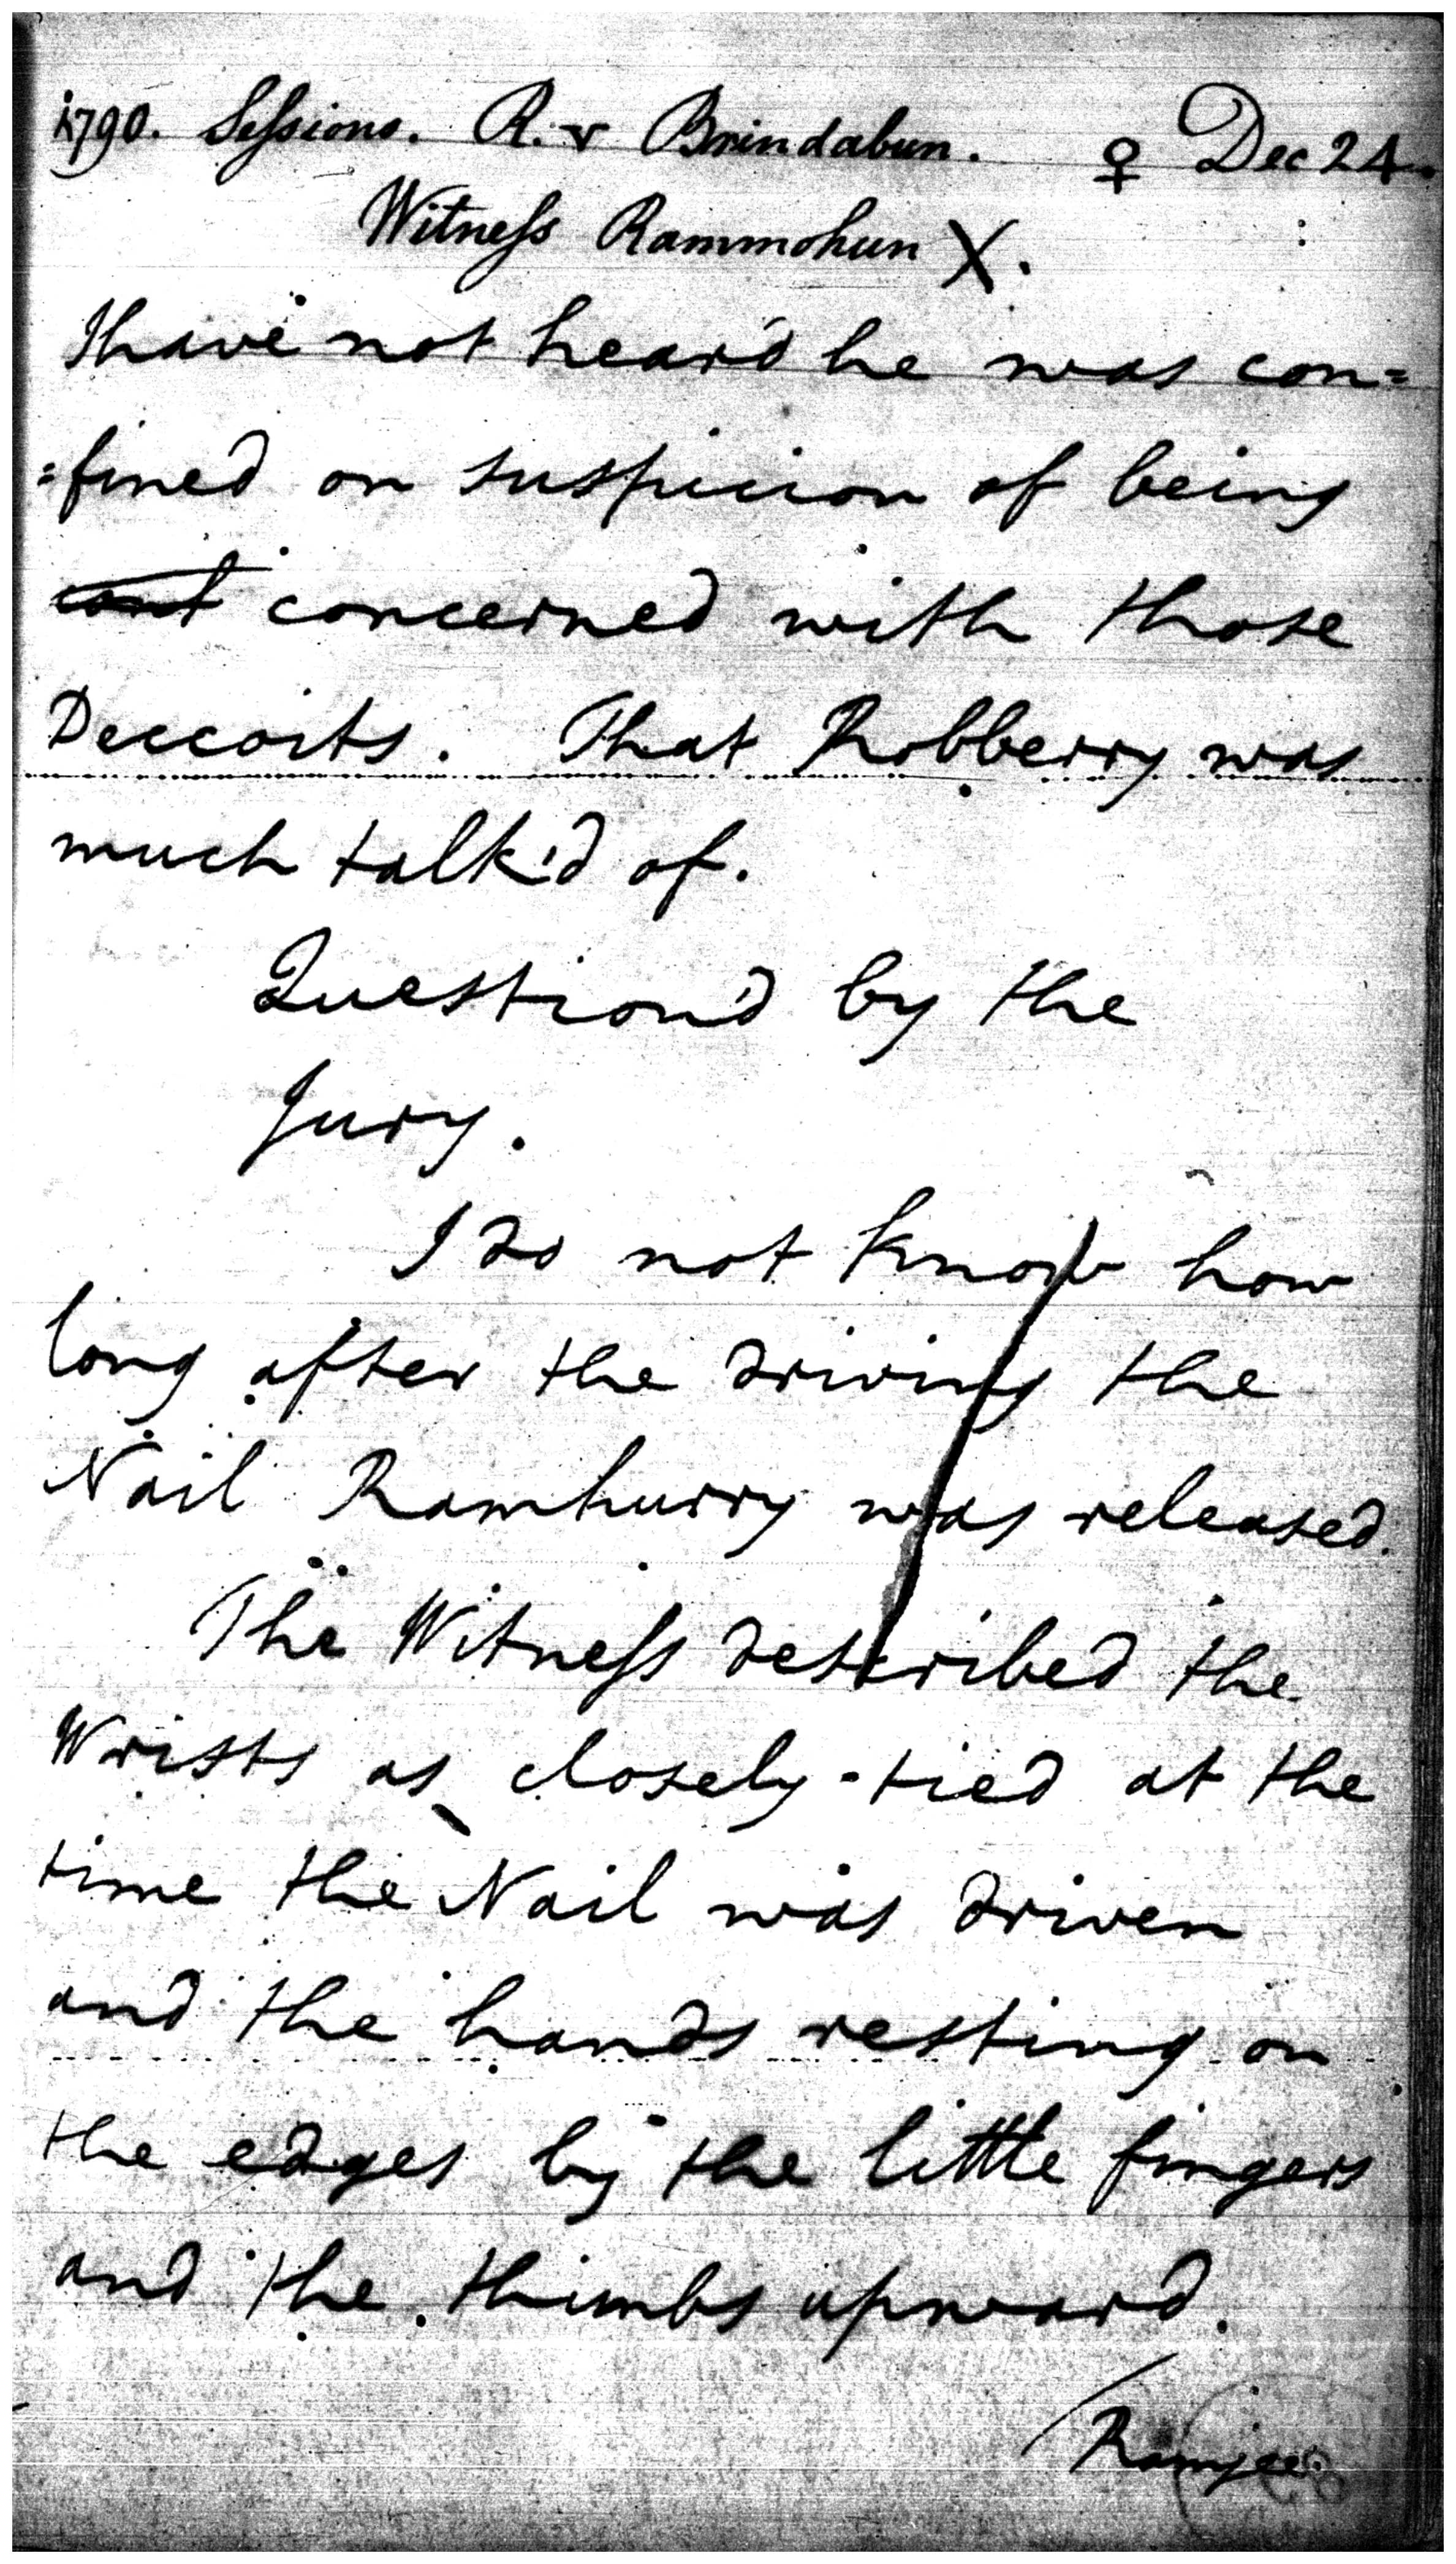 1790. Sessions. R. v Brindabun. ♀ Dec 24.
Witness Rammohun X.
I have not heard he was con=
=fined on suspicion of being
cont concerned with those
Deccoits. That Robberry was
much talk'd of.
Question'd by the
Jury.
I do not know how
long after the driving the
Nail Ramhurry was released.
The Witness described the
Wrists as closely tied at the
time the Nail was driven
and the hands resting on
the edges by the little fingers
and the thumbs upward.
Ramjee